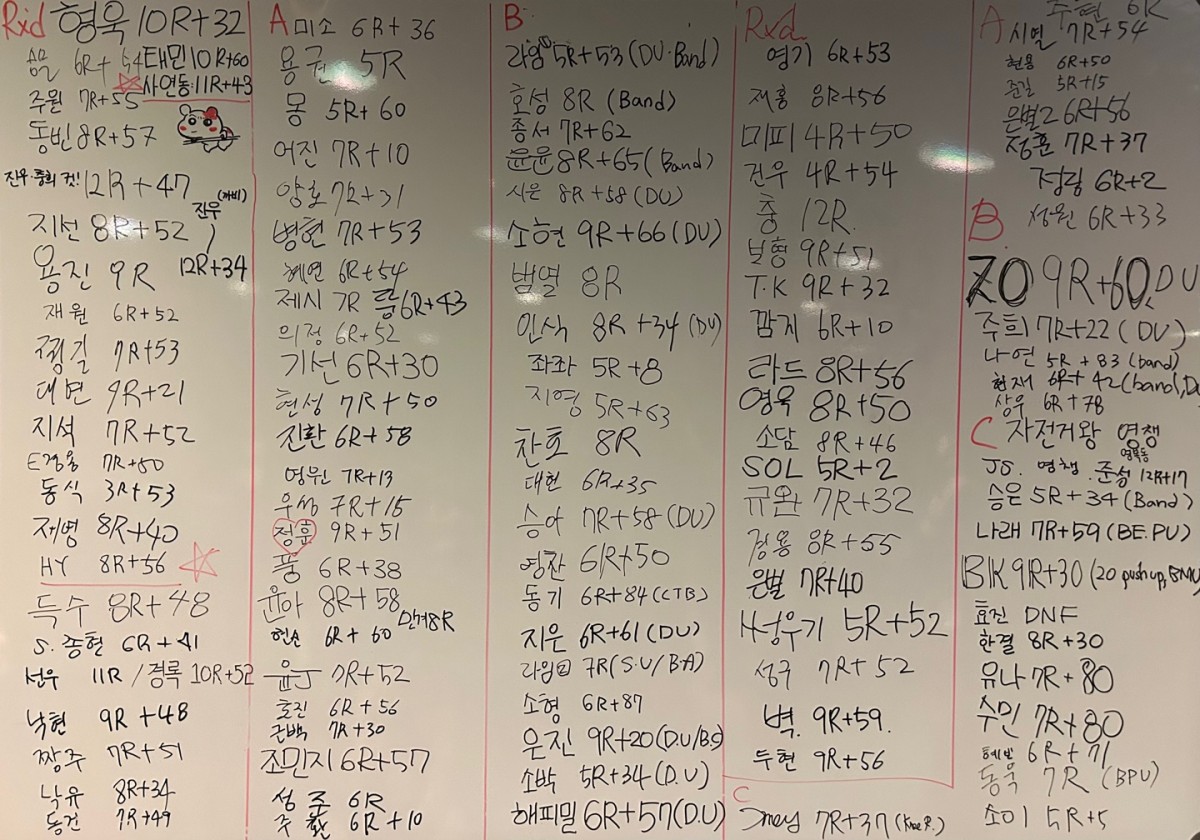 Rxd 형욱 10R+32
6R+54 태민 10R+60
주원 7R+55 사연동:11R+43
동빈 8R+57
12R+47
지선 8R+52 진우
용진 9R 12R+34
재원 6R+52
정길 7R+53
대면 9R+21
지석 7R+52
7R+80
동식 3R+53
제영 8R+40
HY 8R+56
득수 8R+48
S.종현 6R+41
선우 11R / 경록 10R+52
낙현 9R+48
짱주 7R+51
낙유 8R+34
동건 7R+49
A 미소 6R+36
용권 5R
몽 5R+60
어진 7R+10
양호 7R+31
병현 7R+53
혜연 6R+54
제시 7R 름 6R+43
의정 6R+52
기선 6R+30
현성 7R+50
진환 6R+58
영원 7R+13
우성 7R+15
정훈 9R+51
퐁 6R+38
윤아 8R+58
현솔 6R+60 민거 8R
윤J 7R+52
효진 6R+56
근백 7R+30
조민지 6R+57
성준 6R
6R+10
B
라임 5R+53 (DU·Band)
호성 8R (Band)
종서 7R+62
윤윤 8R+65 (Band)
시은 8R+58 (DU)
소현 9R+66 (DU)
범열 8R
인식 8R+34 (DU)
좌좌 5R+8
지영 5R+63
찬호 8R
대헌 6R+35
승아 7R+58 (DU)
영찬 6R+50
동기 6R+84 (CTB)
지은 6R+61 (DU)
라임 7R (S.U/B.A)
소형 6R+87
은진 9R+20 (D.U/B.S)
소박 5R+34 (D.U)
해피밀 6R+57 (D.U)
Rxd
영기 6R+53
재홍 8R+56
미피 4R+50
건우 4R+54
충 12R
보형 9R+51
T.K 9R+32
깜지 6R+10
라드 8R+56
영욱 8R+50
소담 8R+46
SOL 5R+2
규완 7R+32
장용 8R+55
은별 7R+40
H성우기 5R+52
성구 7R+52
벽 9R+59
두현 9R+56
C
7R+37 (Knee R.)
주현 6R
A 시열 7R+54
현용 6R+50
준길 5R+15
은별2 6R+56
정훈 7R+37
정림 6R+2
B 정원 6R+33
ZO 9R+60, DU
주희 7R+22 (DU)
나연 5R+83 (band)
현재 6R+42 (band, Du
상우 6R+78
C 자전거왕 영쟁
JS. 영쟁. 준성 12R+17
승은 5R+34 (Band)
나래 7R+59 (BE.PU)
BIK 9R+30 (20 push up, BMU
효진 DNF
한결 8R+30
유나 7R+80
수민 7R+80
6R+71
동욱 7R (BPU)
소미 5R+5